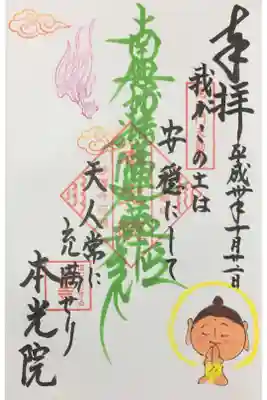 奉拝
平成卅年十月廿一日
我がこの土は
安穏にして
南無妙法蓮華経
天人常に
充満せり
本光院